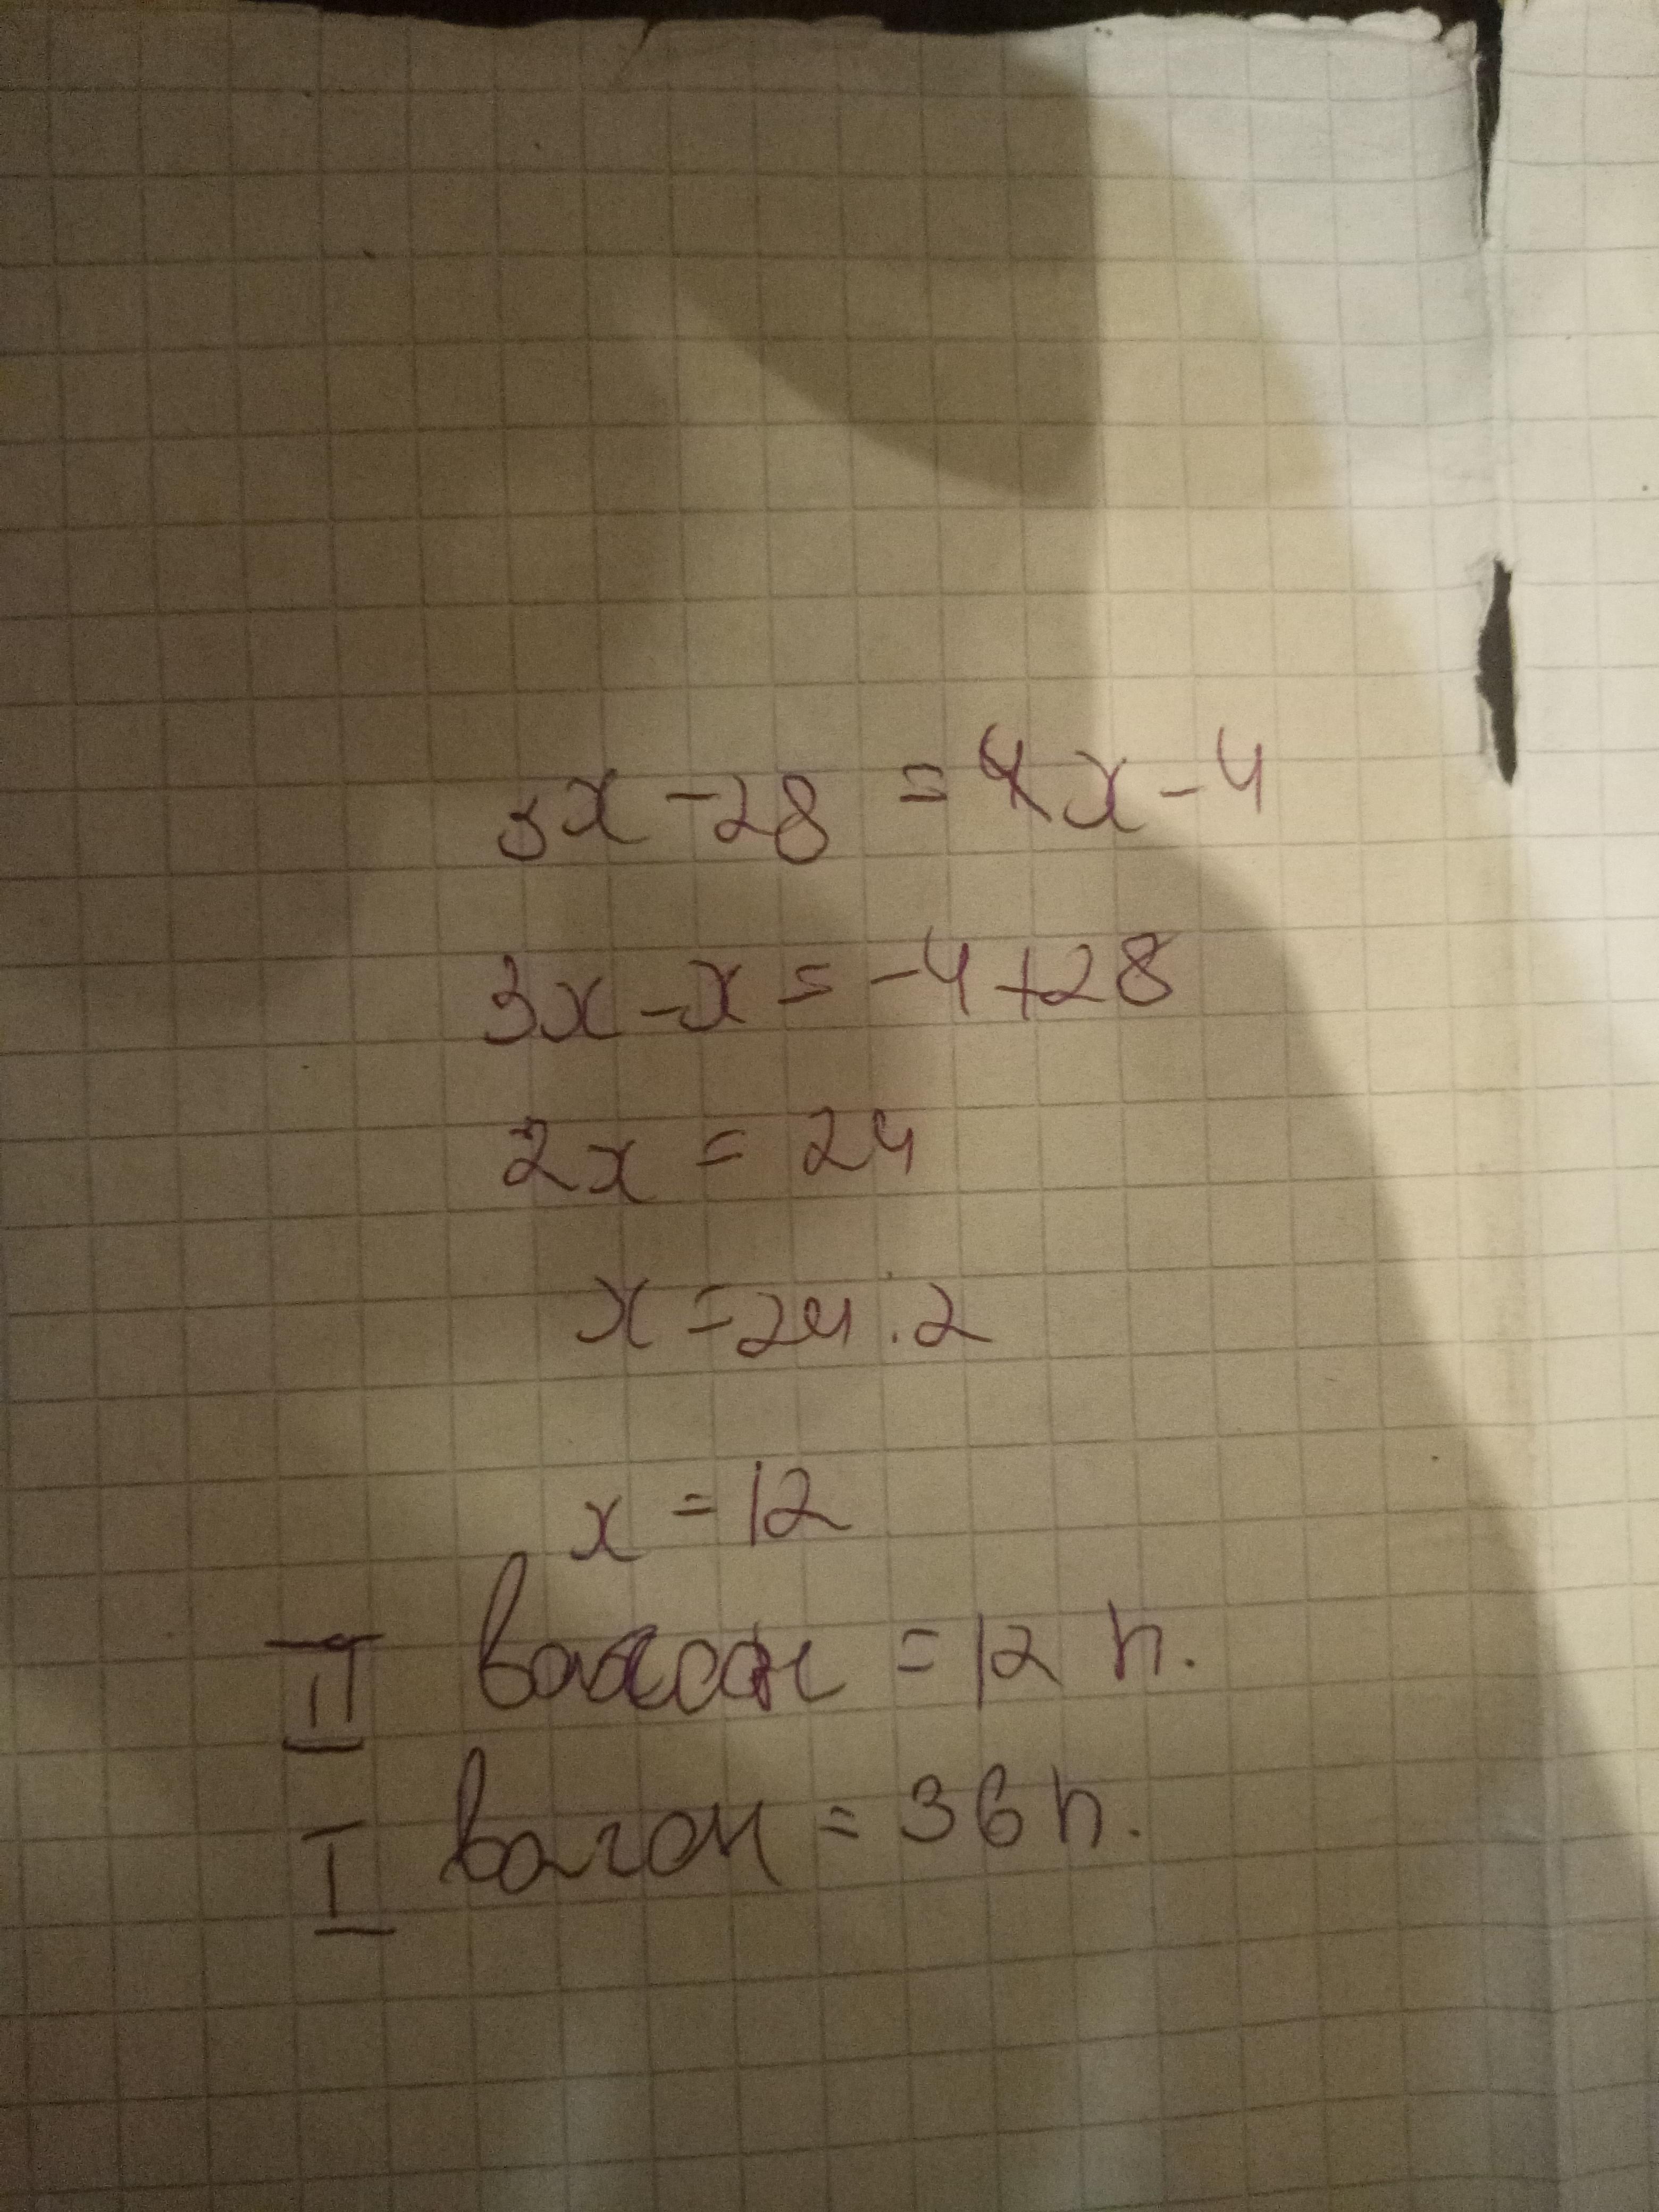 3x - 28 = x - 4
3x - x = -4 + 28
2x = 24
x = 24 : 2
x = 12
II вагон = 12 п.
I вагон = 36 п.